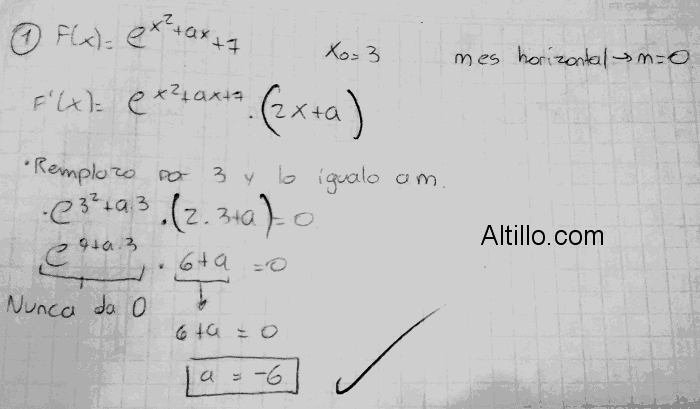 ① F(x)= e^{x²+ax+7} x₀=3 m es horizontal → m=0
F'(x)= e^{x²+ax+7} . (2x+a)
• Remplazo por 3 y lo igualo a m.
. e^{3²+a.3} . (2.3+a)=0
Altillo.com
e^{9+a.3} . 6+a =0
Nunca da 0
6+a = 0
a = -6